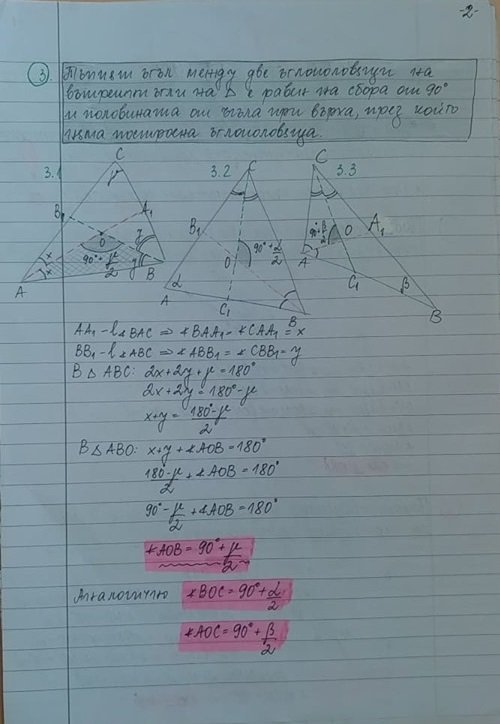 -2-
3 Тъпият ъгъл между две ъглополовящи на
вътрешни ъгли на Δ е равен на сбора от 90°
и половината от ъгъла при върха, през който
няма построена ъглополовяща.
3.1 C γ B₁ A₁ O x x y y 90°+γ/2 A B
3.2 C B₁ O 90°+α/2 α A C₁ B
3.3 C 90°+β/2 O A₁ A C₁ β B
AA₁ - l∢BAC ⇒ ∢BAA₁ = ∢CAA₁ = x
BB₁ - l∢ABC ⇒ ∢ABB₁ = ∢CBB₁ = y
В Δ ABC: 2x+2y+γ=180°
2x+2y=180°-γ
x+y= (180°-γ)/2
В Δ ABO: x+y+∢AOB=180°
(180°-γ)/2 + ∢AOB=180°
90°-γ/2 + ∢AOB=180°
∢AOB=90°+γ/2
Аналогично ∢BOC=90°+α/2
∢AOC=90°+β/2